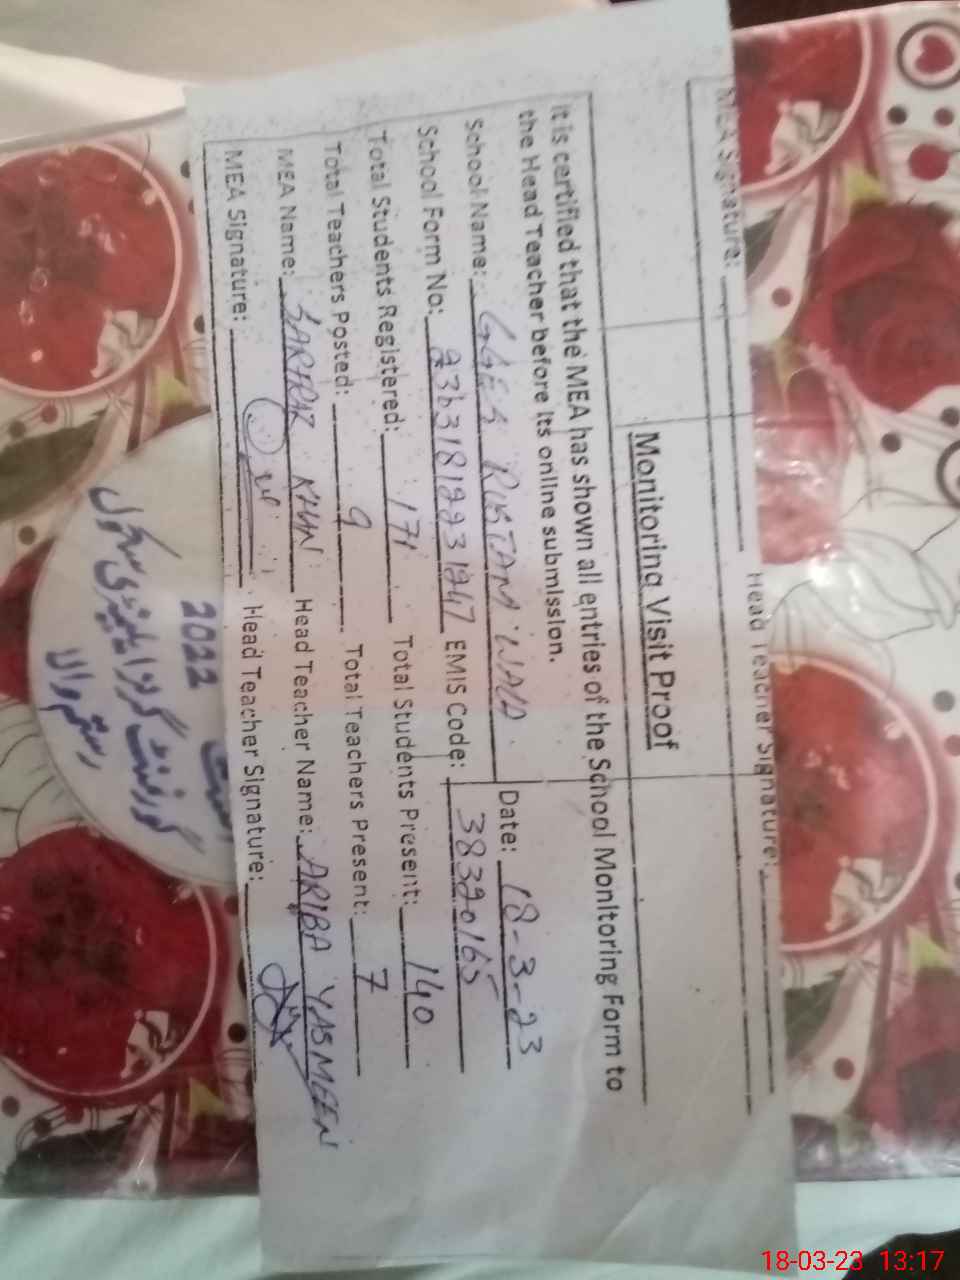 MEA Signature: Head Teacher Signature:
Monitoring Visit Proof
It is certified that the MEA has shown all entries of the School Monitoring Form to
the Head Teacher before its online submission.
Date: 18-3-23
School Name: GGES RUSTAM WALA
School Form No: EMIS Code: 38320165
Total Students Registered: 171 Total Students Present: 140
Total Teachers Posted: 9 Total Teachers Present: 7
MEA Name: SARFRAZ KHAN Head Teacher Name: ARIBA YASMEEN
MEA Signature: Head Teacher Signature:
2022
گورنمنٹ گرلز ایلیمنٹری سکول
رستم والا
18-03-23 13:17